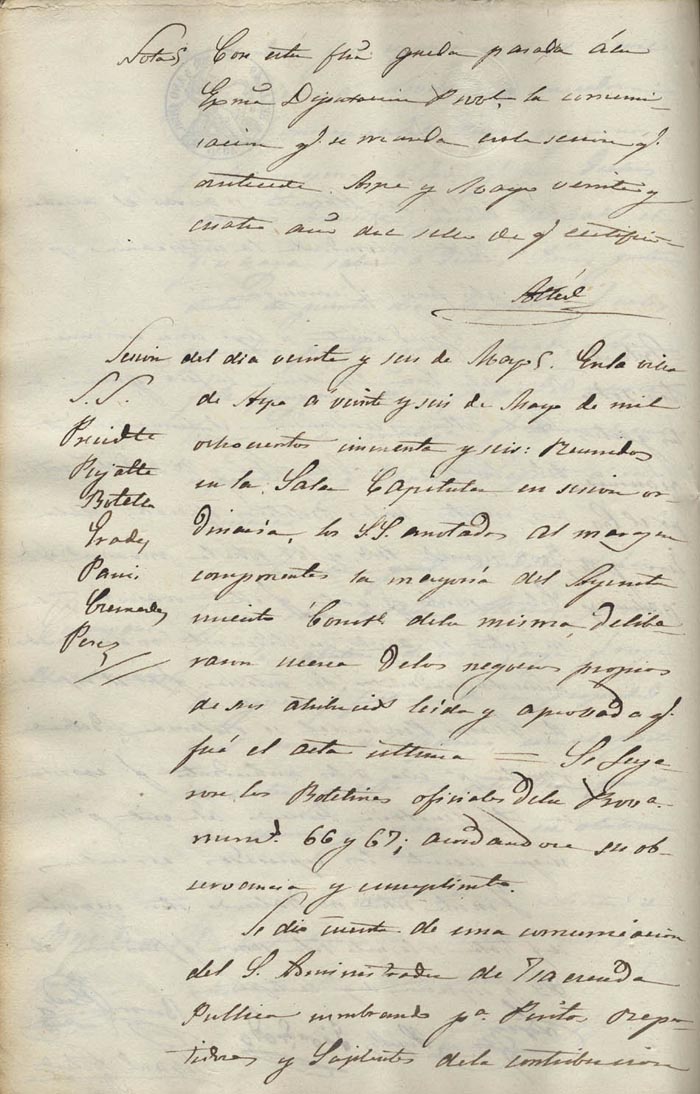 Nota Con esta fha queda pasada á la
Exma Diputacion Provl. la comuni-
cacion q. se manda en la sesion q.
antecede. Aspe y Mayo veinte y
cuatro año del sello de q. certifico
Sesion del dia veinte y seis de Mayo. En la villa
S.S. de Aspe á veinte y seis de Mayo de mil
Presidte ochocientos cincuenta y seis: Reunidos
Pujalte en la Sala Capitular en sesion or
Botella
Prades dinaria, los S.S. anotados al margen
componentes la mayoría del Ayunta
Cremades miento Constl. de la misma, delibe
Perez raron acerca de los negocios propios
de sus atribucions leida y aprobada q.
fué el acta ultima = Se leye
ron los Boletines oficiales de la Prova.
nums. 66 y 67; acordandose su ob-
servancia y cumplimto.
Se dio cuenta de una comunicacion
del S. Administrador de Hacienda
Publica nombrando pa. Peritos repar
tidores y Suplentes de la contribucion